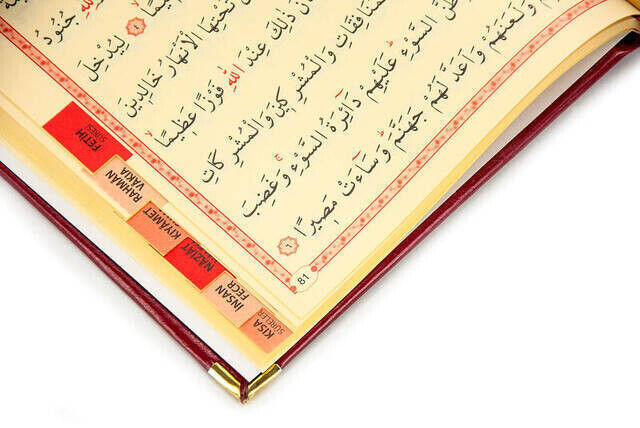 جُنُودُ
٤ لِيُدْخِلَ
تَحْتِهَا الْاَنْهَارُ خَالِدِينَ
ذٰلِكَ عِنْدَ اللّٰهِ فَوْزًا عَظِيمًا
وَالْمُشْرِكِينَ وَالْمُشْرِكَاتِ
ظَنَّ السَّوْءِ عَلَيْهِمْ دَٓائِرَةُ السَّوْءِ وَغَضِبَ
وَلَعَنَهُمْ وَاَعَدَّ لَهُمْ جَهَنَّمَ وَسَٓاءَتْ مَصِيرًا ٦
81
FETİH
SÛRESİ
RAHMAN
VAKIA
KIYÂMET
NAZİÂT
İNSAN
FECR
KISA
SÛRELER